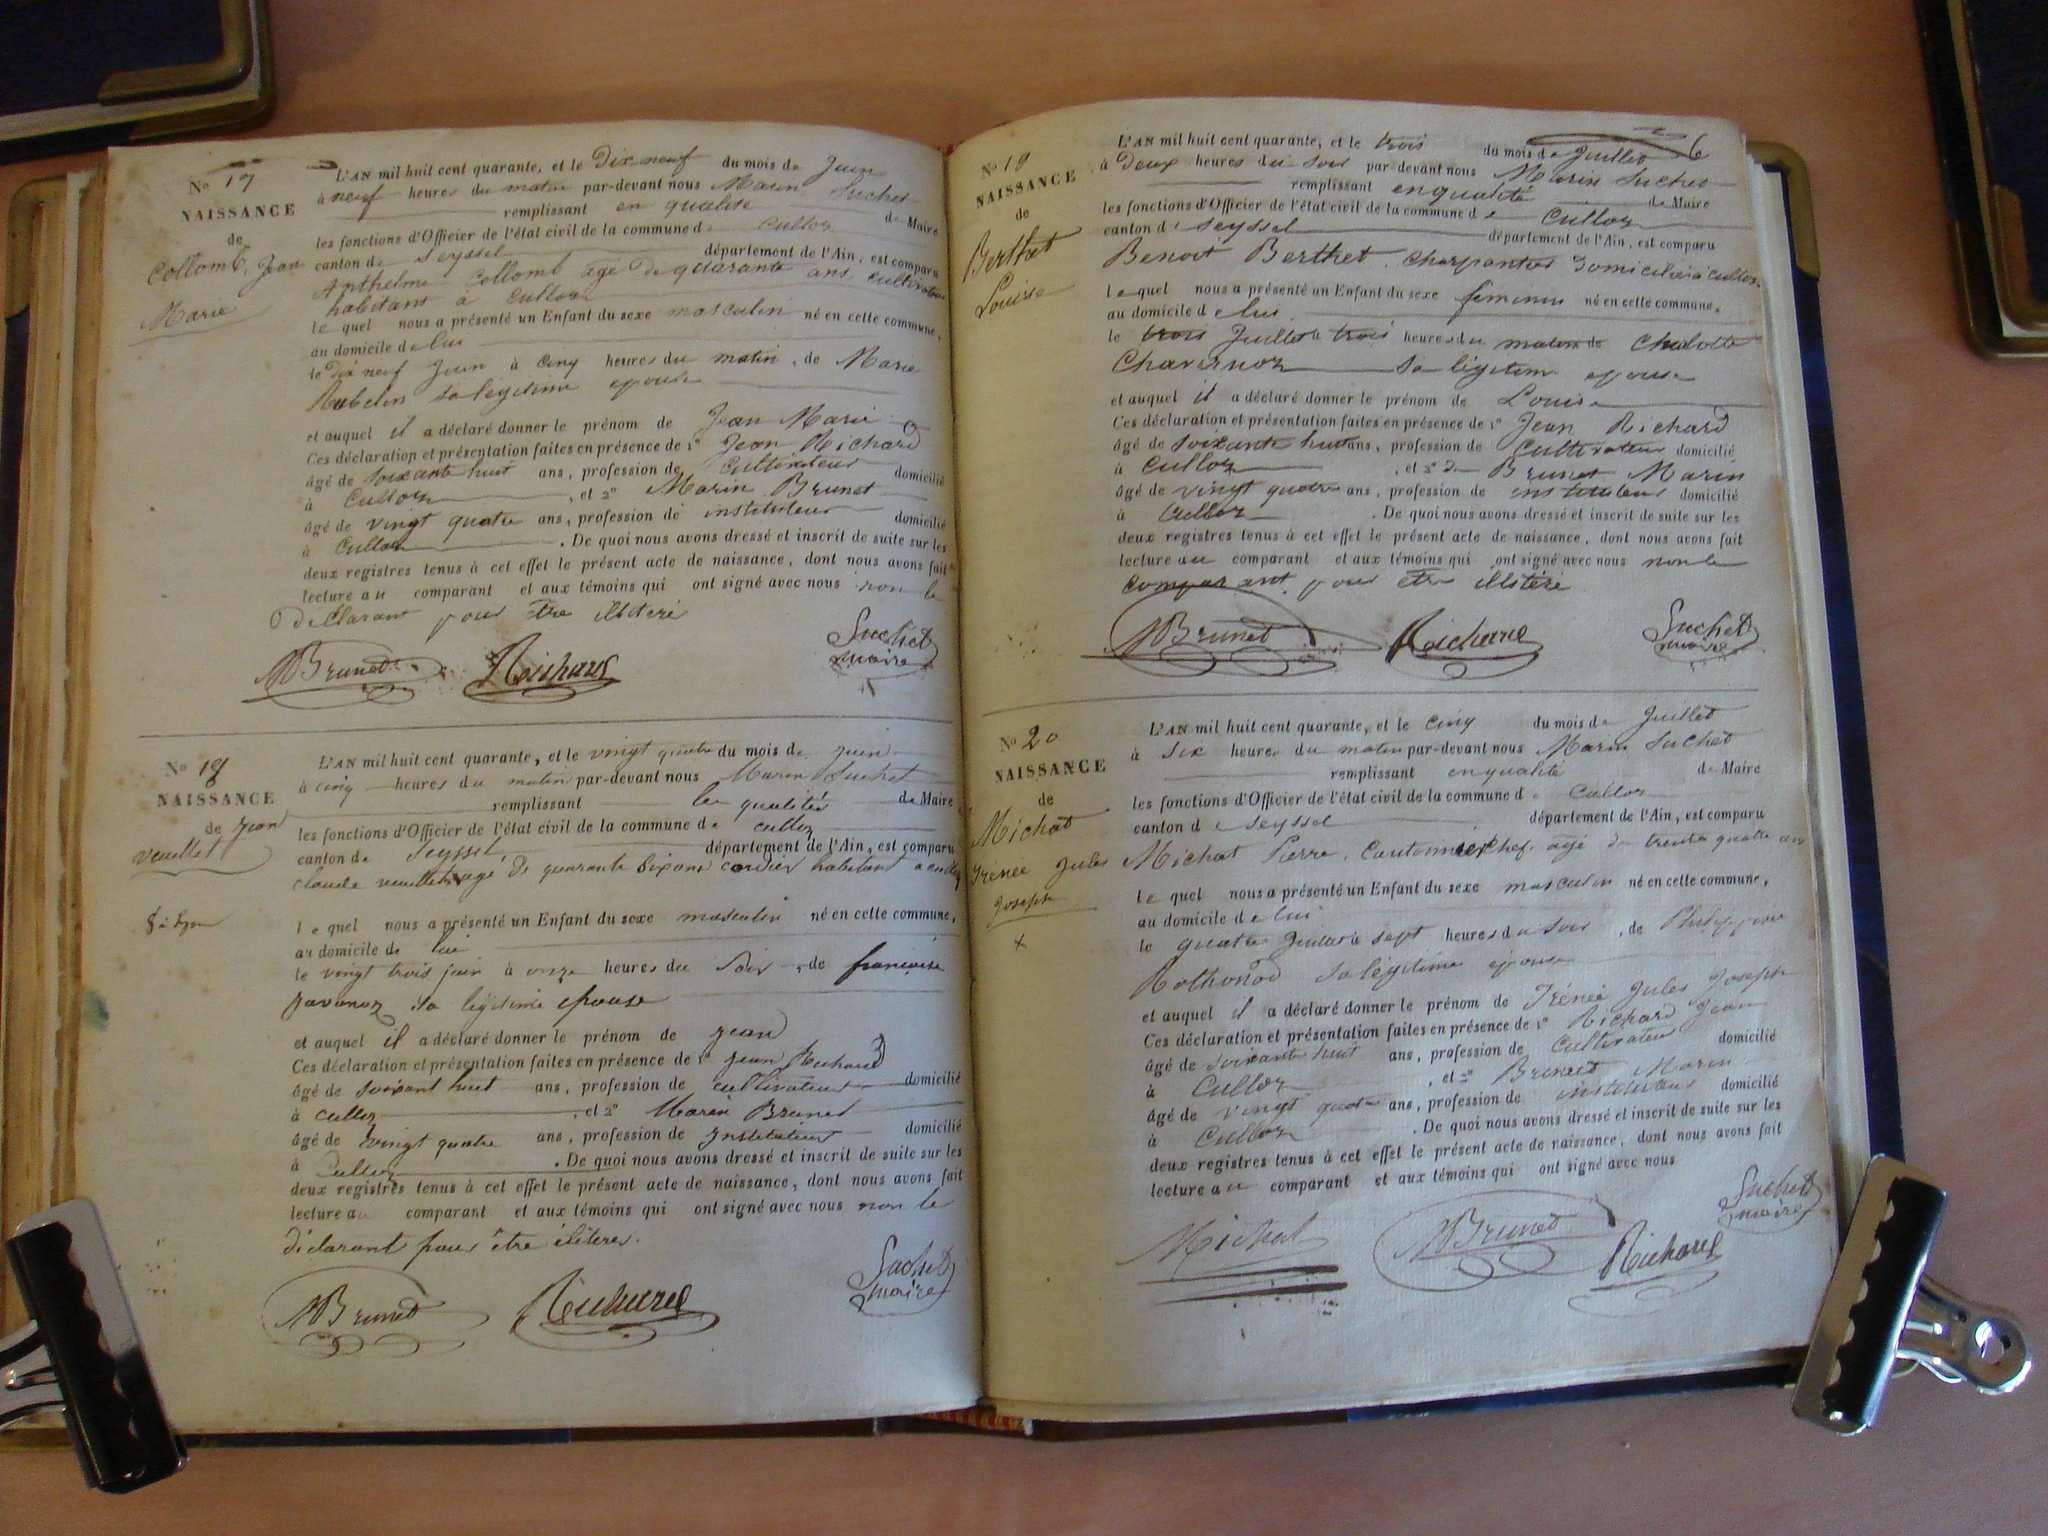 No 17
NAISSANCE
de
Collomb, Jean
Marie
L'AN mil huit cent quarante, et le Dix neuf du mois de Juin
à neuf heures du matin par-devant nous Marin Suchet
remplissant en qualité de Maire
les fonctions d'Officier de l'état civil de la commune de Culloz
canton de Seyssel département de l'Ain, est comparu
Anthelme Collomb agé De quarante ans, cultivateur
habitant à Culloz
le quel nous a présenté un Enfant du sexe masculin né en cette commune,
au domicile de lui
le Dix neuf Juin à Cinq heures du matin, de Marie
Rubelin sa légitime epouse
et auquel il a déclaré donner le prénom de Jean Marie
Ces déclaration et présentation faites en présence de 1° Jean Richard
âgé de soixante huit ans, profession de Cultivateur domicilié
à Culloz, et 2° Marin Brunet
âgé de vingt quatre ans, profession de instituteur domicilié
à Culloz. De quoi nous avons dressé et inscrit de suite sur les
deux registres tenus à cet effet le présent acte de naissance, dont nous avons fait
lecture au comparant et aux témoins qui ont signé avec nous non le
Déclarant pour être illitéré
MBrunet Richard Suchet
maire
No 18
NAISSANCE
de Jean
Vuillet
L'AN mil huit cent quarante, et le vingt quatre du mois de juin
à cinq heures du matin par-devant nous Marin Suchet
remplissant les qualités de Maire
les fonctions d'Officier de l'état civil de la commune de Culloz
canton de Seyssel département de l'Ain, est comparu
Claude agé De quarante Six ans cordier habitant a culloz
le quel nous a présenté un Enfant du sexe masculin né en cette commune,
au domicile de lui
le vingt trois juin à onze heures du Soir, de françoise
Javanoz sa légitime epouse
et auquel il a déclaré donner le prénom de jean
Ces déclaration et présentation faites en présence de 1° jean Richard
âgé de soixant huit ans, profession de cultivateur domicilié
à culloz, et 2° Marin Brunet
âgé de vingt quatre ans, profession de Instituteur domicilié
à Culloz. De quoi nous avons dressé et inscrit de suite sur les
deux registres tenus à cet effet le présent acte de naissance, dont nous avons fait
lecture au comparant et aux témoins qui ont signé avec nous non le
déclarant pour être
MBrunet Richard Suchet
maire
6
No 19
NAISSANCE
de
Berthet
Louise
L'AN mil huit cent quarante, et le trois du mois de Juillet
à Deux heures du soir par-devant nous Marin Suchet
remplissant en qualité de Maire
les fonctions d'Officier de l'état civil de la commune de Culloz
canton de Seyssel département de l'Ain, est comparu
Benoit Berthet, charpentier Domicilié à culloz
le quel nous a présenté un Enfant du sexe féminin né en cette commune,
au domicile de lui
le trois Juillet à trois heures du matin de
Chavernoz Sa légitime epouse
et auquel il a déclaré donner le prénom de Louise
Ces déclaration et présentation faites en présence de 1° Jean Richard
âgé de soixante huit ans, profession de Cultivateur domicilié
à Culloz, et 2° Brunet Marin
âgé de vingt quatre ans, profession de instituteur domicilié
à Culloz. De quoi nous avons dressé et inscrit de suite sur les
deux registres tenus à cet effet le présent acte de naissance, dont nous avons fait
lecture au comparant et aux témoins qui ont signé avec nous non le
comparant, pour être illitéré
MBrunet Richard Suchet
maire
No 20
NAISSANCE
de
Michat
Irénée Jules
Joseph
L'AN mil huit cent quarante, et le cinq du mois de Juillet
à six heures du matin par-devant nous Marin Suchet
remplissant en qualité de Maire
les fonctions d'Officier de l'état civil de la commune de Culloz
canton de Seyssel département de l'Ain, est comparu
Michat Pierre, Cantonnier chef agé de trente quatre ans
le quel nous a présenté un Enfant du sexe masculin né en cette commune,
au domicile de lui
le quatre Juillet à sept heures du soir, de Philippine
Rothonod sa légitime epouse
et auquel il a déclaré donner le prénom de Irénée Jules Joseph
Ces déclaration et présentation faites en présence de 1° Richard Jean
âgé de soixante huit ans, profession de Cultivateur domicilié
à Culloz, et 2° Brunet Marin
âgé de vingt quatre ans, profession de instituteur domicilié
à Culloz. De quoi nous avons dressé et inscrit de suite sur les
deux registres tenus à cet effet le présent acte de naissance, dont nous avons fait
lecture au comparant et aux témoins qui ont signé avec nous
Michat MBrunet Richard Suchet
maire